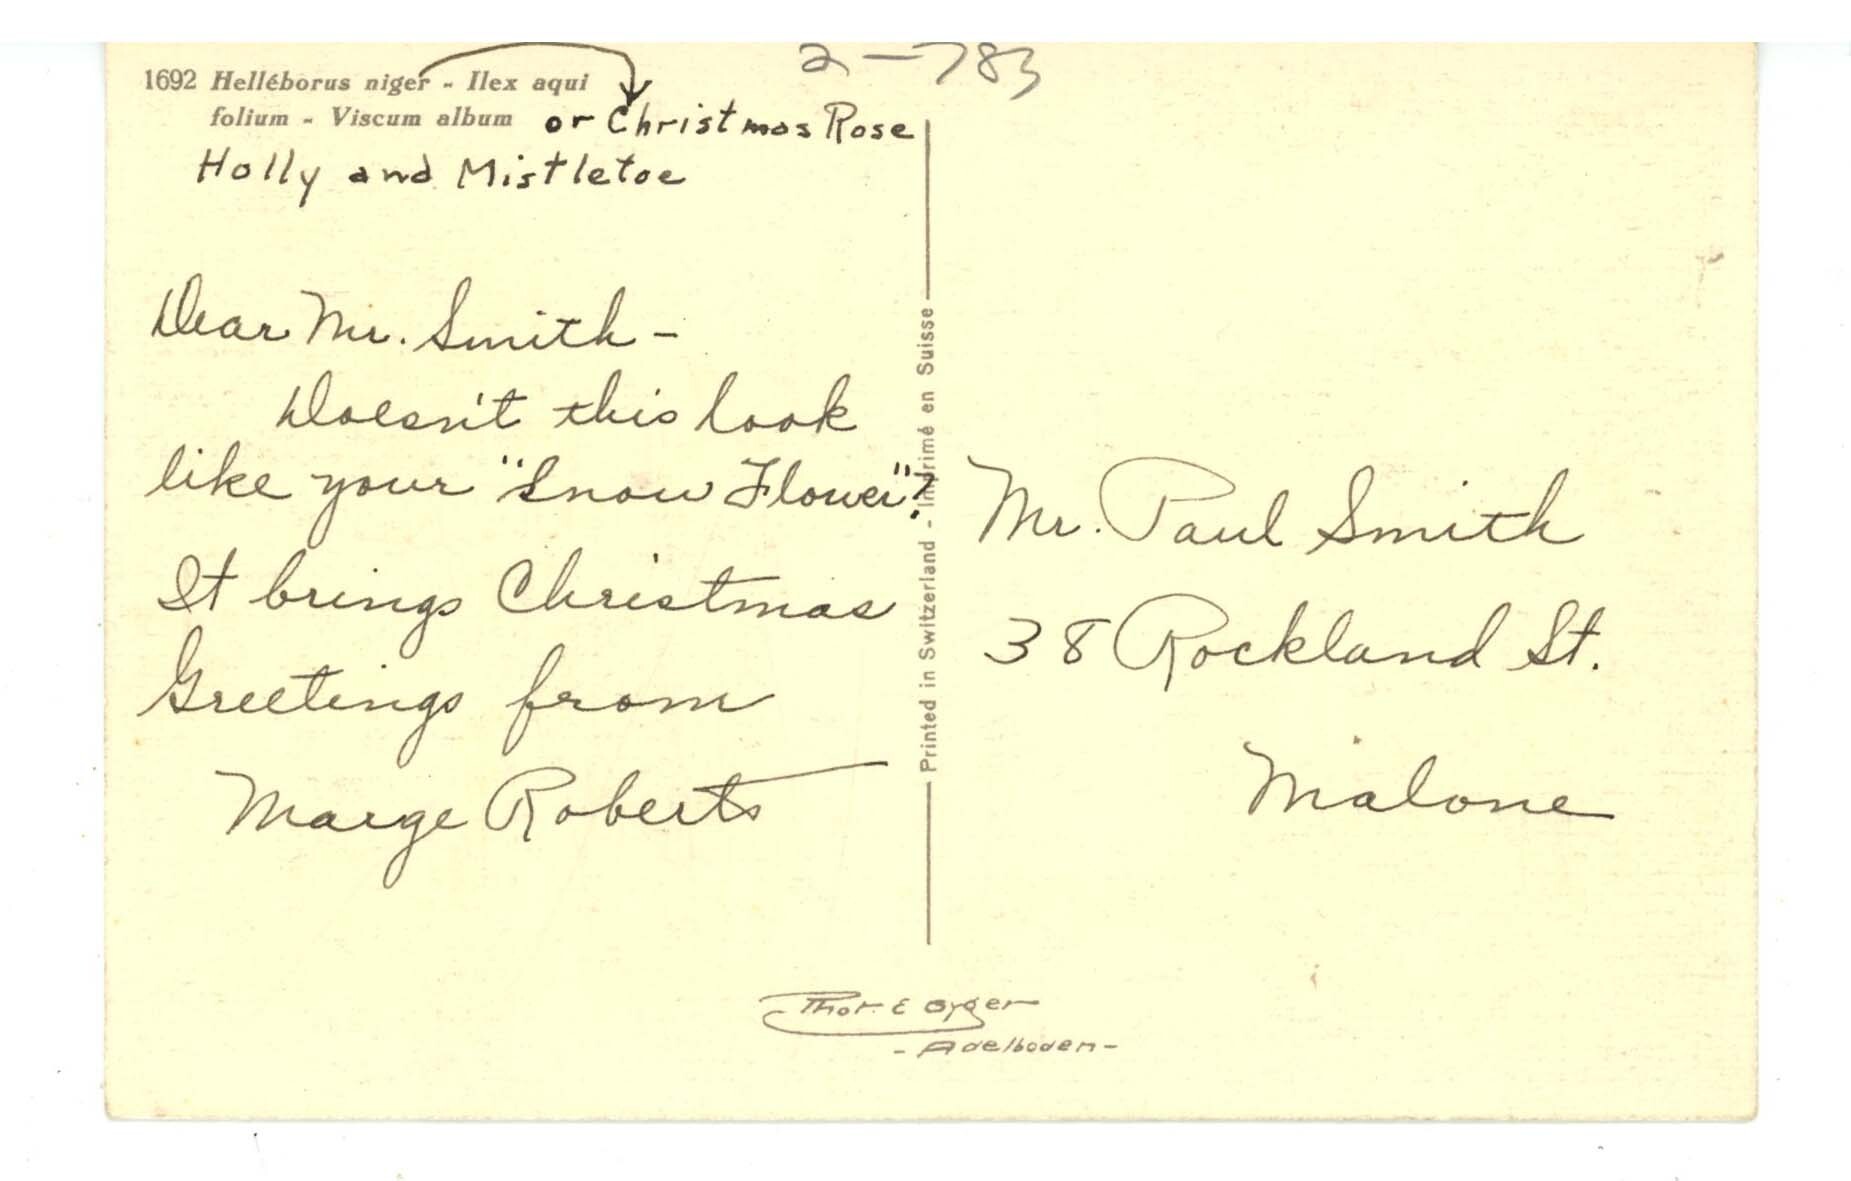 2-783
1692 Helléborus niger - Ilex aqui
folium - Viscum album or Christmas Rose
Holly and Mistletoe
Dear Mr. Smith -
Doesn't this look
like your "Snow Flower"?
It brings Christmas
Greetings from
Marge Roberts
Printed in Switzerland - Imprimé en Suisse
Mr. Paul Smith
38 Rockland St.
Malone
Thor E Gyger
- Adelboden -